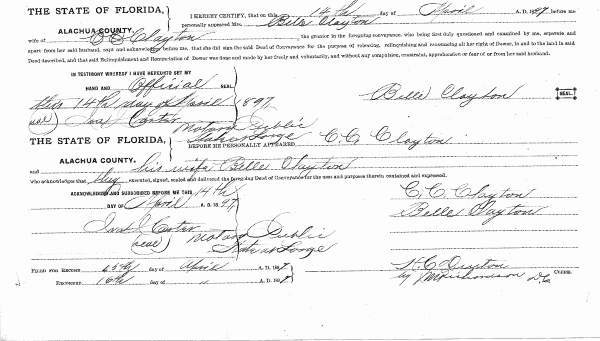 THE STATE OF FLORIDA,
ALACHUA COUNTY.
I HEREBY CERTIFY, that on this 14th day of April A. D. 1897 before me
personally appeared Mrs. Belle Clayton
wife of C C Clayton the grantor in the foregoing conveyance, who being first duly questioned and examined by me, separate and
apart from her said husband, says and acknowledges before me, that she did sign the said Deed of Conveyance for the purpose of releasing, relinquishing and renouncing all her right of Dower, in and to the land in said
Deed described, and that said Relinquishment and Renunciation of Dower was done and made by her freely and voluntarily, and without any compulsion, constraint, apprehension or fear of or from her said husband.
IN TESTIMONY WHEREOF I HAVE HEREUNTO SET MY
HAND AND Official SEAL
this 14th day of April 1897
Belle Clayton SEAL.
(seal) Carter
Notary Public
State at Large
THE STATE OF FLORIDA,
ALACHUA COUNTY.
BEFORE ME PERSONALLY APPEARED C. C. Clayton
and his wife Belle Clayton
who acknowledges that they executed, signed, sealed and delivered the foregoing Deed of Conveyance for the uses and purposes therein contained and expressed.
ACKNOWLEDGED AND SUBSCRIBED BEFORE ME THIS 14th
DAY OF April A. D. 1897.
C. C. Clayton
Belle Clayton
Carter
(seal) Notary Public
State at Large
FILED FOR RECORD 15th day of April A. D. 1897
RECORDED 16th day of " A. D. 1897
H. C. Denton CLERK.
by Richardson D.C.